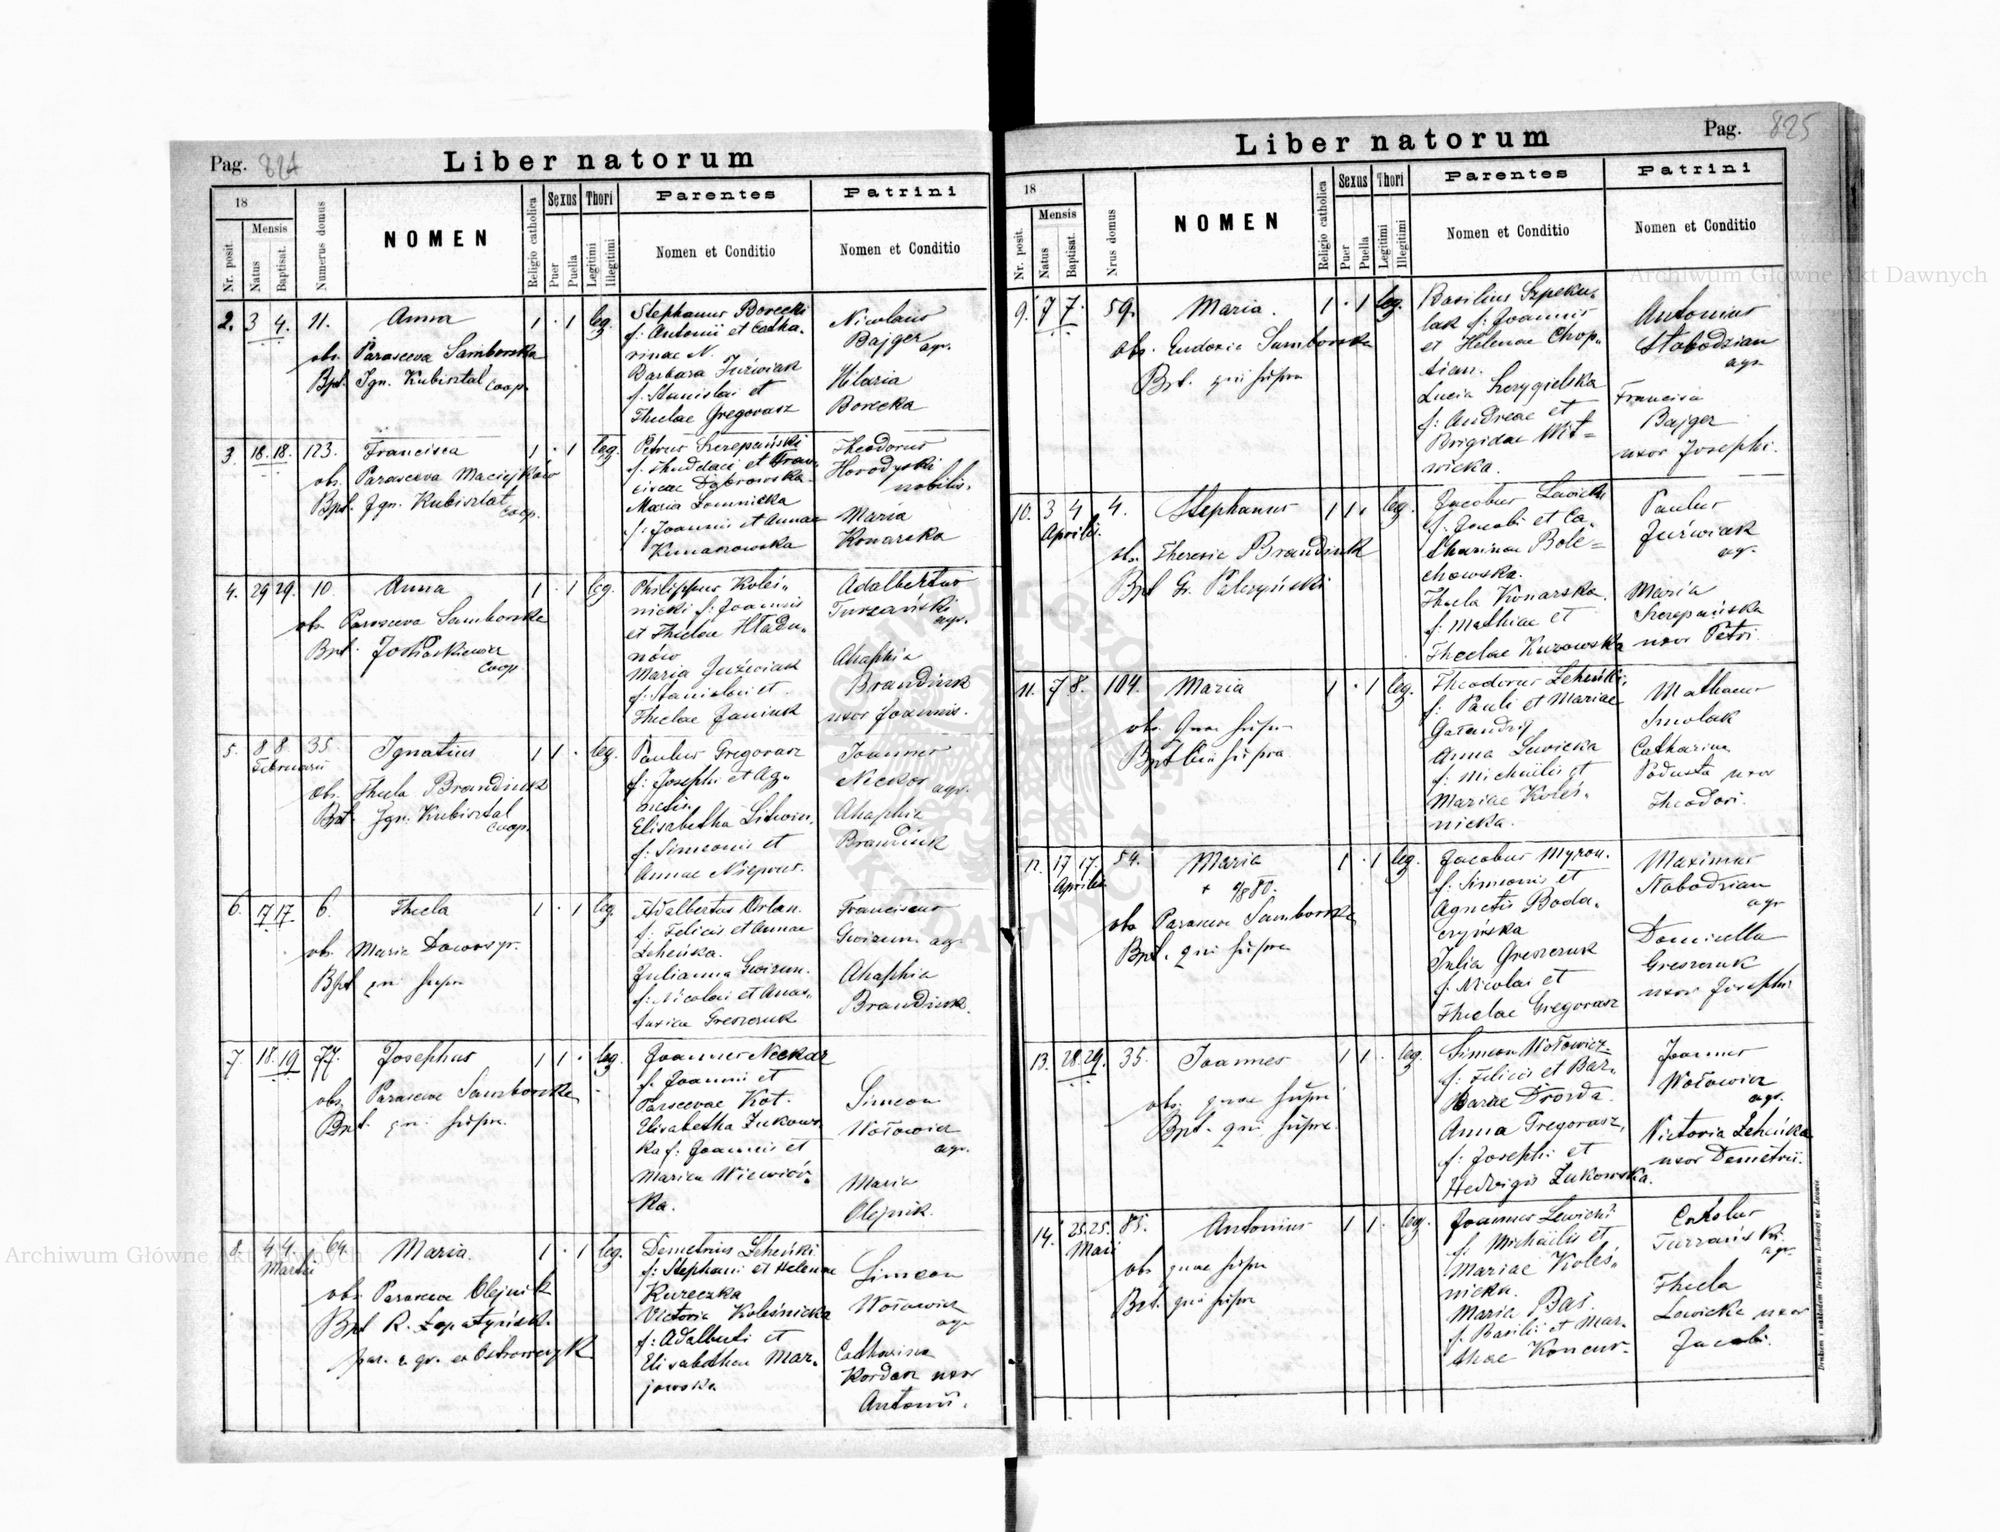 Pag. 824
Liber natorum
18
Nr. posit.
Mensis
Natus
Baptisat.
Numerus domus
NOMEN
Religio catholica
Sexus
Puer
Puella
Thori
Legitimi
Illegitimi
Parentes
Nomen et Conditio
Patrini
Nomen et Conditio
2. 3 4. 11. Anna 1 . 1 leg.
obs. Parasceva Samborska
Bpt. Ign. Kubisztal coop.
Stephanus Borecki
f: Antonii et Catha-
rinae N.
Barbara Juźwiak
f: Stanislai et
Theclae Gregorasz
Nicolaus
Bajger agr.
Hilaria
Borecka
3. 18. 18. 123. Francisca 1 . 1 leg.
obs. Parasceva Maciejków
Bpt. Ign. Kubisztal coop.
Petrus Szczepański
et Fran-
ciscae Dąbrowska.
Maria Łomnicka
f: Joannis et Annae
Theodorus
Horodyski
nobilis.
Maria
Konarska
4. 29 29. 10. Anna 1 . 1 leg.
obs. Parasceva Samborska
Bpt. coop.
Philippus Koleś-
nicki f: Joannis
et Theclae Hładu-
nów
Maria Juźwiak
f: Stanislai et
Theclae Janiuk
Adalbertus
Turzański
agr.
Ahaphia
Brandiuk
uxor Joannis.
5. 8. 8. 35. Ignatius 1 1 . leg.
Februarii
obs. Thecla Brandiuk
Bpt. Ign. Kubisztal
coop.
Paulus Gregorasz
f: Josephi et Ag-
netis.
Elisabetha Litwin,
f: Simeonis et
Annae
Joannes
Neckar agr.
Ahaphia
Brandiuk
6. 17 17. 6. Thecla 1 . 1 leg.
obs. Maria
Bpt qui supra
Adalbertus Orlan.
f. Felicis et Annae
Leheńka.
Julianna Gwizun.
f. Nicolai et Anas-
tasiae Greszczuk
Franciscus
Gwizun agr.
Ahaphia
Brandiuk.
7. 18. 19. 77. Josephus 1 1 . leg.
obs. Parasceva Samborska
Bpt. qui supra.
Joannes Neckar
f. Joannis et
Parscevae Kot.
Elisabetha Żukows-
ka f: Joannis et
Mariae Wiewiór-
ka.
Simeon
Wołowicz
agr.
Maria
Olejnik.
8. 4 4. 64. Maria. 1 . 1 leg.
Martii
obs. Parasceva Olejnik
Bpt R. Łopatyński.
par. r. gr. ex
Demetrius Leheński
f: Stephani et Helenae
Kureczka
Victoria Koleśnicka
f: Adalberti et
Elisabethae Mar-
jowska
Simeon
Wołowicz
agr.
Catharina
Kordasz uxor
Antonii.
Pag. 825
Liber natorum
18
Nr. posit.
Mensis
Natus
Baptisat.
Nrus domus
NOMEN
Religio catholica
Sexus
Puer
Puella
Thori
Legitimi
Illegitimi
Parentes
Nomen et Conditio
Patrini
Nomen et Conditio
9. 7 7. 59. Maria. 1 . 1 leg.
obs. Eudoxia Samborska
Bpt. qui supra
Basilius Szpeku-
lak f: Joannis
et Helenae Chop-
tian.
Lucia Szczygielska
f: Andreae et
Brigidae Wit-
wicka.
Antonius
Stobodzian
agr.
Francisca
Bajger
uxor Josephi.
10. 3 4 4. Stephanus 1 1 . leg.
Aprilis.
obs. Theresia Brandiuk
Bpt G. Palczyński
Jacobus Lewicki
f: Jacobi et Ca-
tharinae Bole-
chowska.
Thecla Konarska
f: Mathiae et
Theclae Kurowska
Paulus
Juźwiak
agr.
Maria
Szczepańska
uxor Petri.
11. 7 8. 104. Maria 1 . 1 leg.
obs. quae supra
Bpt. qui supra
Theodorus Leheński
f: Pauli et Mariae
Gałandij
Anna Lewicka
f: Michaelis et
Mariae Koleś-
nicka.
Mathaeus
Smolak
Catharina
Podusta uxor
Theodori.
12. 17 17. 54. Maria 1 . 1 leg.
Aprilis
obs Parasceva Samborska
Bpt. qui supra
Jacobus Myron.
f. Simeonis et
Agnetis Boda-
czyńska
Julia Greszczuk
f. Nicolai et
Theclae Gregorasz
Maximus
Słabodzian
agr
Domicella
Greszczuk
uxor Josephi
13. 28. 29. 35. Joannes 1 1 . leg.
obs. quae supra
Bpt. qui supra.
Simeon Wołowicz
f: Felicis et Bar-
barae Drozda.
Anna Gregorasz,
f: Josephi et
Hedvigis Żukowska.
Joannes
Wołowicz
agr.
Victoria Leheńka
uxor Demetrii.
14. 25. 25. 85. Antonius 1 1 . leg.
Maii
obs quae supra
Bpt. qui supra
Joannes Lewicki
f. Michaelis et
Mariae Koleś-
nicka.
Maria Bas.
f. Basilii et Mar-
thae
Carolus
Turzański
agr.
Thecla
Lewicka uxor
Jacobi.
Drukiem i nakładem Drukarni Ludowej we Lwowie.
Archiwum Główne Akt Dawnych
Archiwum Główne Akt Dawnych